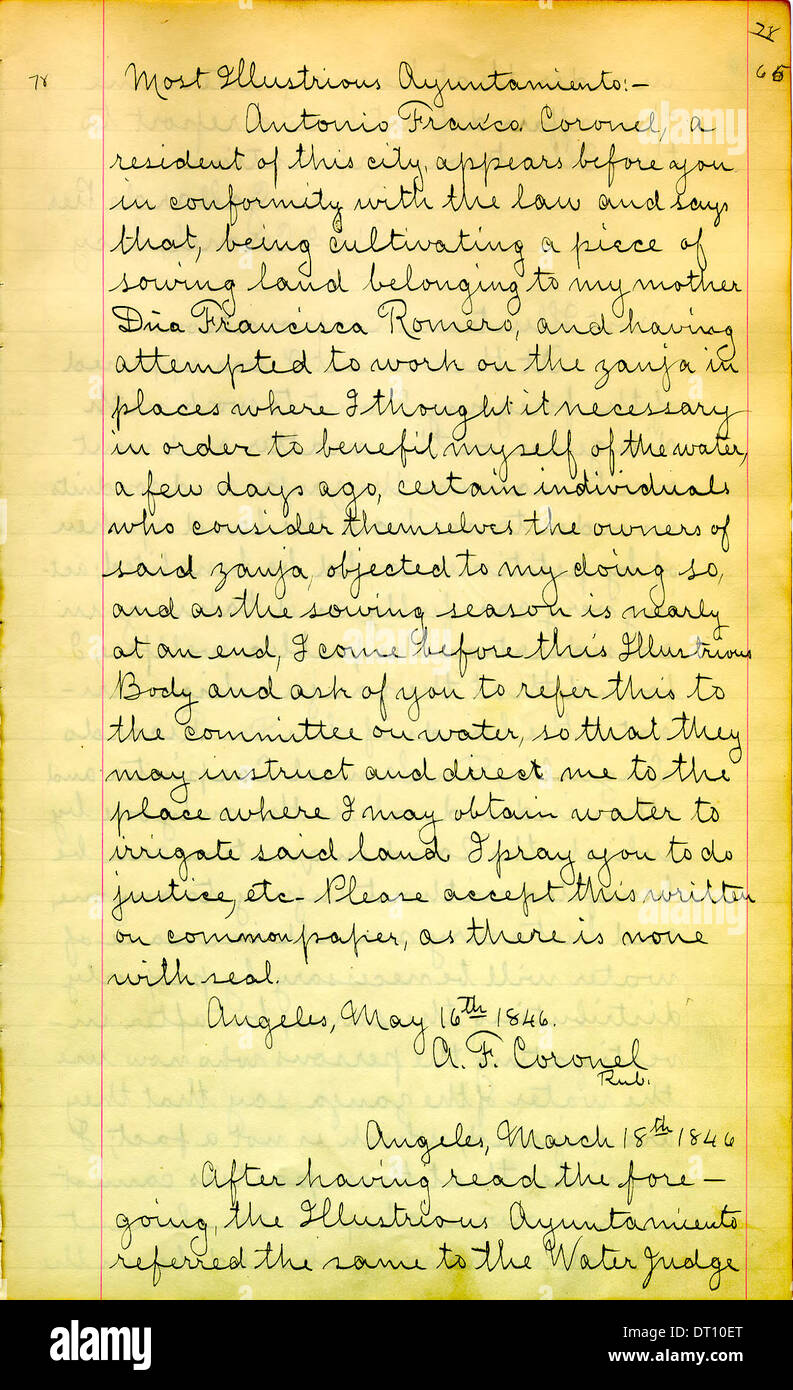 78
65
78
Most Illustrious Ayuntamiento:-
Antonio Fran'co. Coronel, a
resident of this city, appears before you
in conformity with the law and says
that, being cultivating a piece of
sowing land belonging to my mother
Dña Francisca Romero, and having
attempted to work on the zanja in
places where I thought it necessary
in order to benefit myself of the water,
a few days ago, certain individuals
who consider themselves the owners of
said zanja, objected to my doing so,
and as the sowing season is nearly
at an end, I come before this Illustrious
Body and ask of you to refer this to
the committee on water, so that they
may instruct and direct me to the
place where I may obtain water to
irrigate said land. I pray you to do
justice, etc- Please accept this written
on common paper, as there is none
with seal.
Angeles, May 16th 1846.
A. F. Coronel
Rub.
Angeles, March 18th 1846
After having read the fore-
going, the Illustrious Ayuntamiento
referred the same to the Water Judge
alamy
Image ID: DT10ET
www.alamy.com